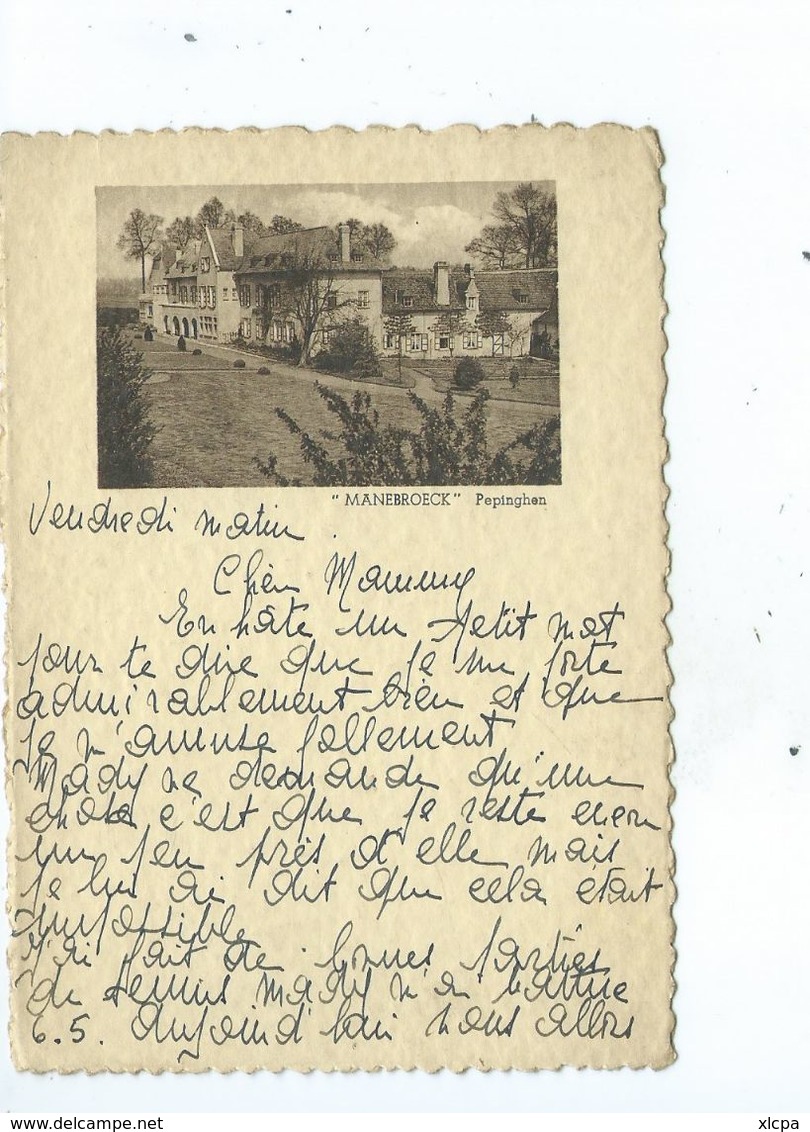 "MANEBROECK" Pepinghen
Vendredi matin.
Chère Mammy
En hâte un petit mot
pour te dire que je me porte
admirablement bien et que
je m'amuse follement
Mady ne demande qu'une
chose c'est que je reste encore
un peu près d'elle mais
je lui ai dit que cela était
impossible
J'ai fait de bonnes parties
de tennis Mady m'a battue
6.5. aujourd'hui nous allons
www.delcampe.net
xlcpa